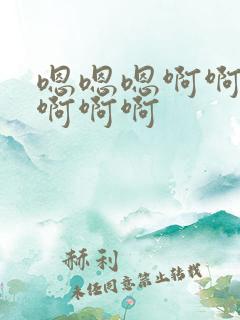 嗯嗯嗯啊啊
啊啊啊
赫利
未经同意禁止转载